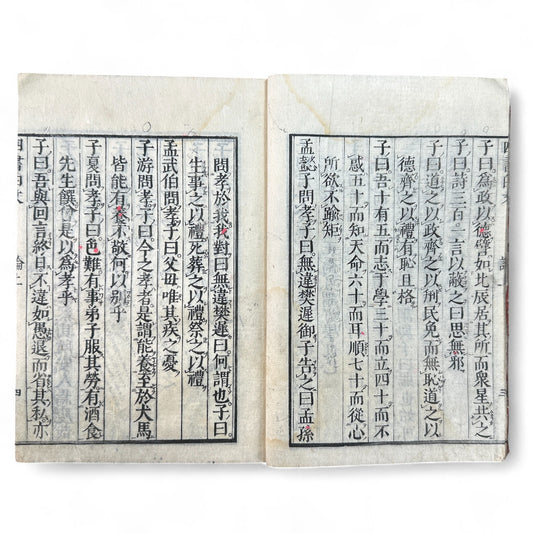 子曰爲政以德譬如北辰居其所而衆星共之
子曰詩三百一言以蔽之曰思無邪
子曰道之以政齊之以刑民免而無恥道之以
德齊之以禮有恥且格
子曰吾十有五而志于學三十而立四十而不
惑五十而知天命六十而耳順七十而從心
所欲不踰矩
孟懿子問孝子曰無違樊遲御子告之曰孟孫
問孝於我我對曰無違樊遲曰何謂也子曰
生事之以禮死葬之以禮祭之以禮
孟武伯問孝子曰父母唯其疾之憂
子游問孝子曰今之孝者是謂能養至於犬馬
皆能有養不敬何以別乎
子夏問孝子曰色難有事弟子服其勞有酒食
先生饌曾是以爲孝乎
子曰吾與回言終日不違如愚退而省其私亦
四書白文 論上 四